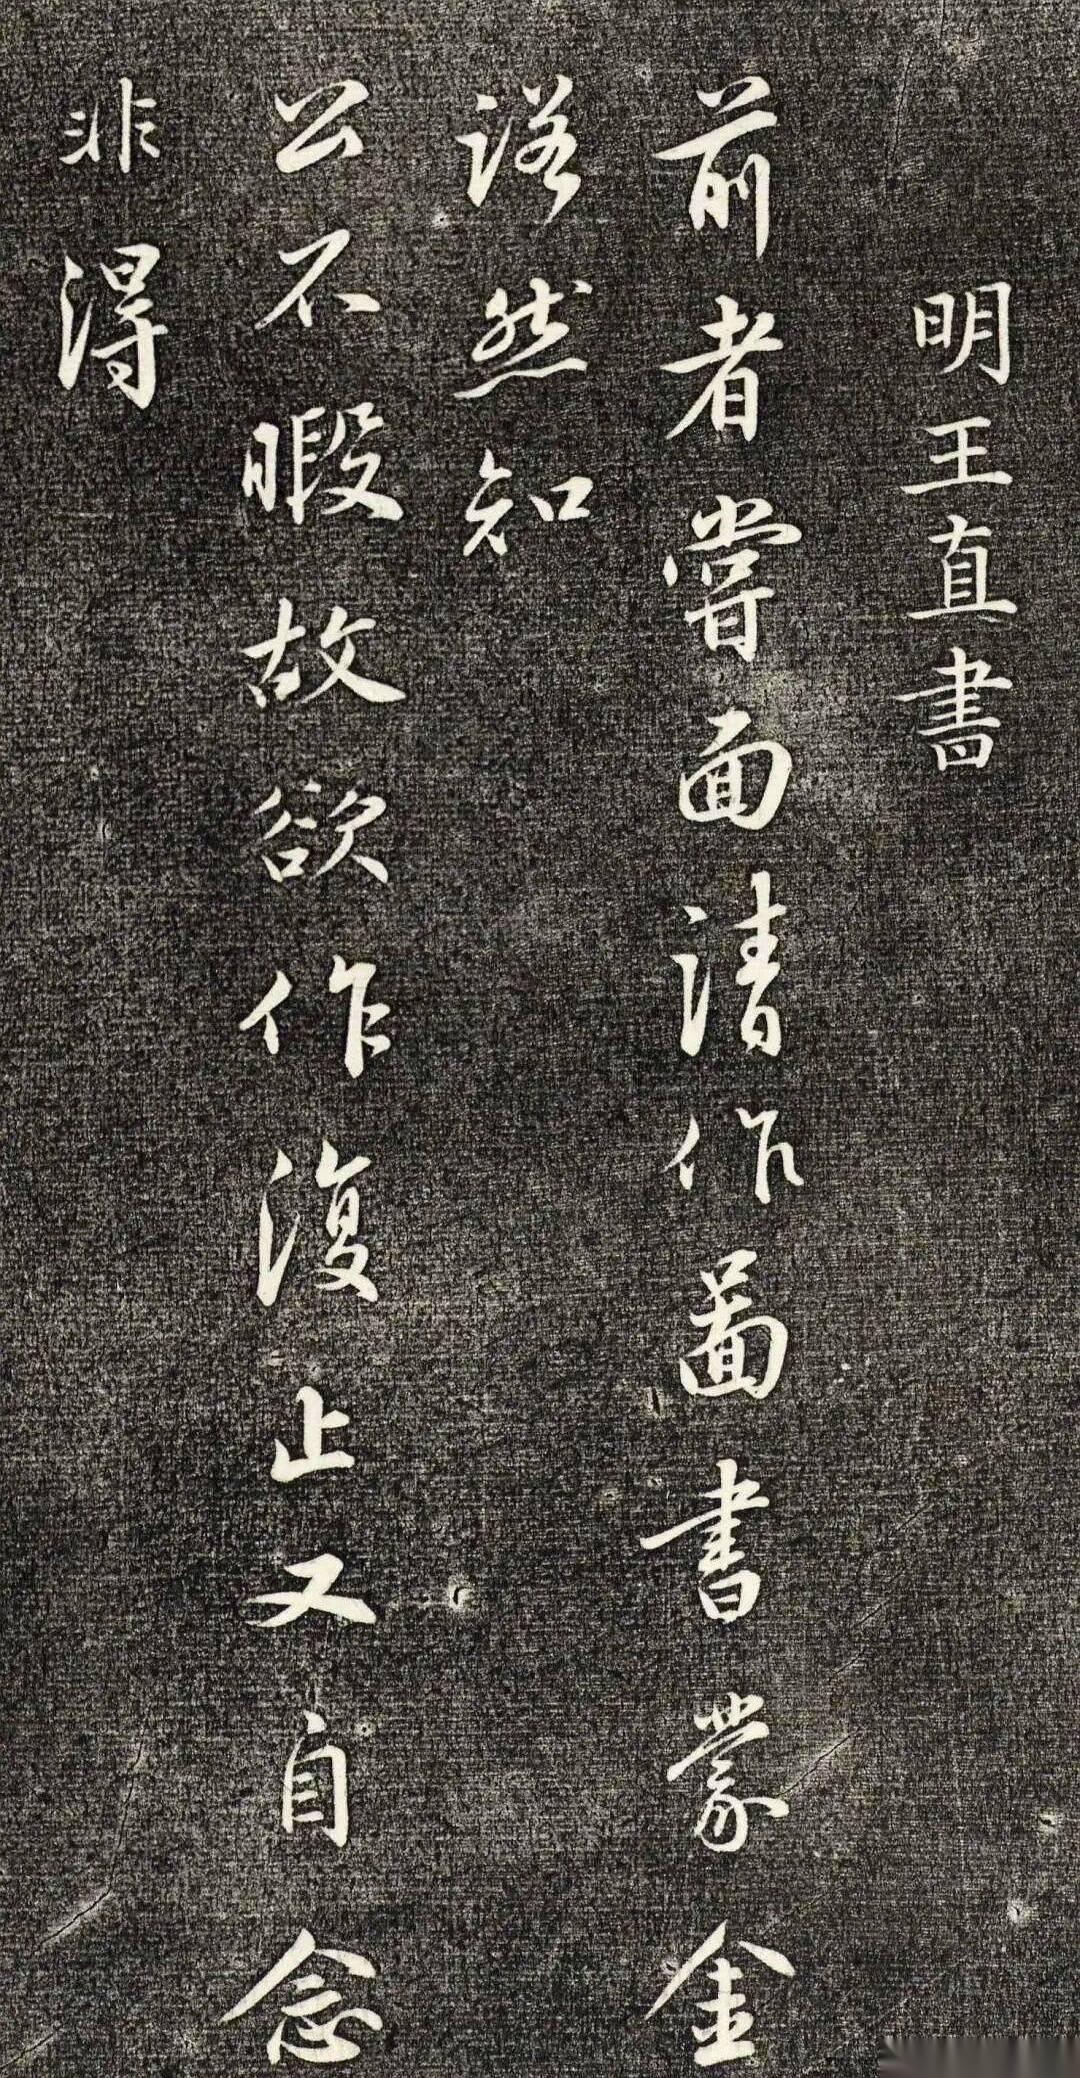 明王直書
前者嘗面請作圖書蒙金
諾然知
公不暇故欲作復止又自念
非得